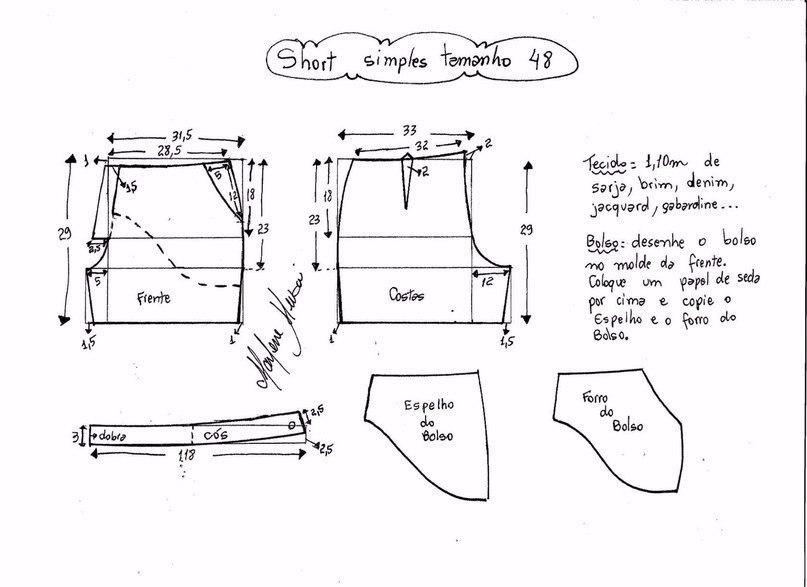 Short simples tamanho 48
31,5
28,5
1
1,5
5
12
18
23
29
2,5
5
Frente
1,5
1
33
32
2
2
18
23
29
Costas
12
1
1,5
Tecido= 1,10m de
sarja, brim, denim,
jacquard, gabardine...
Bolso= desenhe o bolso
no molde da frente.
Coloque um papel de seda
por cima e copie o
Espelho e o forro do
Bolso.
Marlene Mukai
3
dobra
cós
2,5
2,5
118
Espelho
do
Bolso
Forro
do
Bolso